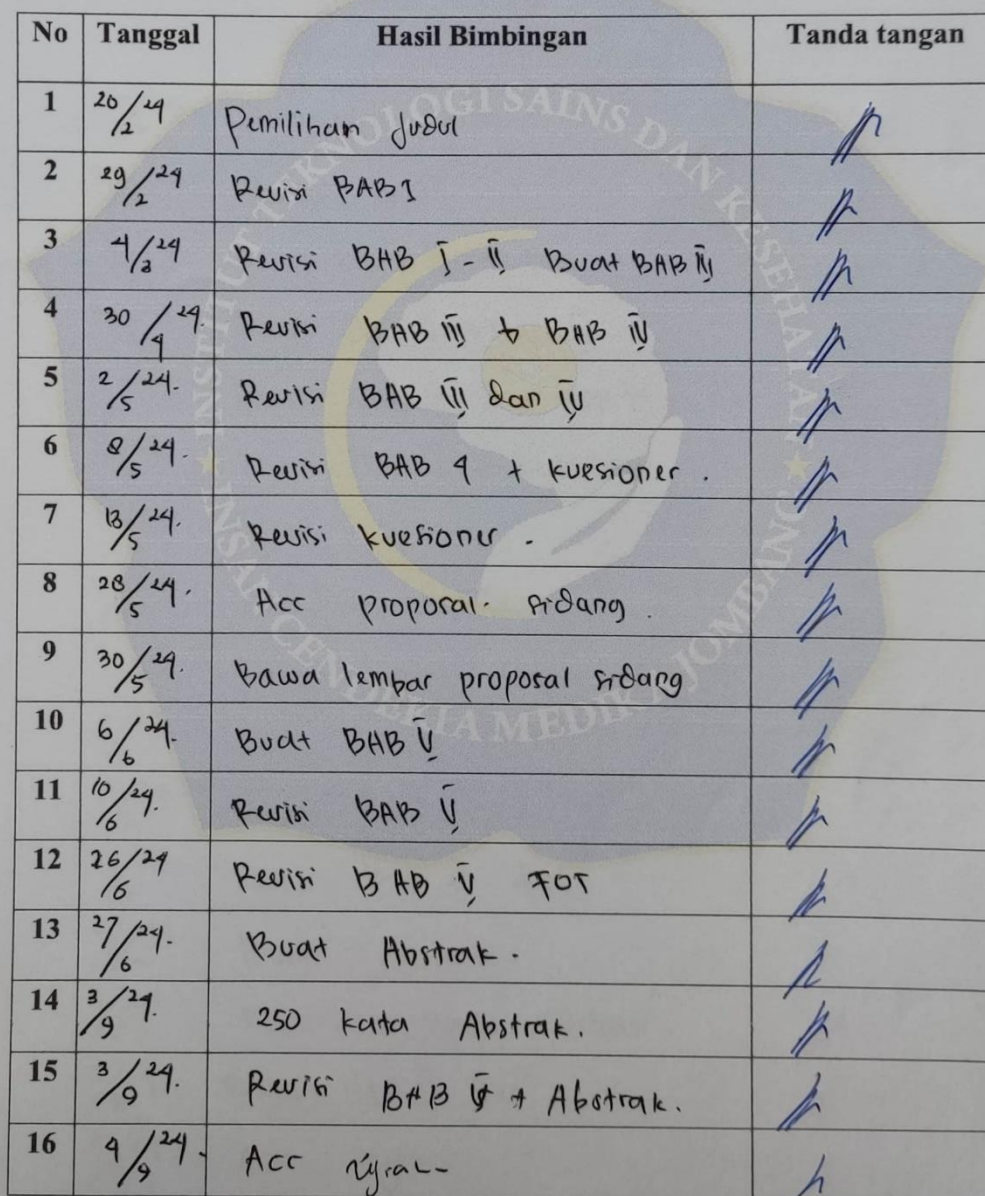 No Tanggal Hasil Bimbingan Tanda tangan
1 20/2 24 Pemilihan Judul
2 29/2 24 Revisi BAB I
3 4/3 24 Revisi BAB I - II Buat BAB III
4 30/4 24. Revisi BAB III + BAB IV
5 2/5 24. Revisi BAB III dan IV
6 8/5 24. Revisi BAB 4 + kuesioner.
7 13/5 24. Revisi kuesioner.
8 28/5 24. Acc proposal. sidang.
9 30/5 24. Bawa lembar proposal sidang
10 6/6 24. Buat BAB V
11 10/6 24. Revisi BAB V
12 26/6 24 Revisi BAB V
13 27/6 24. Buat Abstrak.
14 3/9 24. 250 kata Abstrak.
15 3/9 24. Revisi BAB + Abstrak.
16 4/9 24. Acc
INSTITUT TEKNOLOGI SAINS DAN KESEHATAN
INSAN CENDEKIA MEDIKA JOMBANG